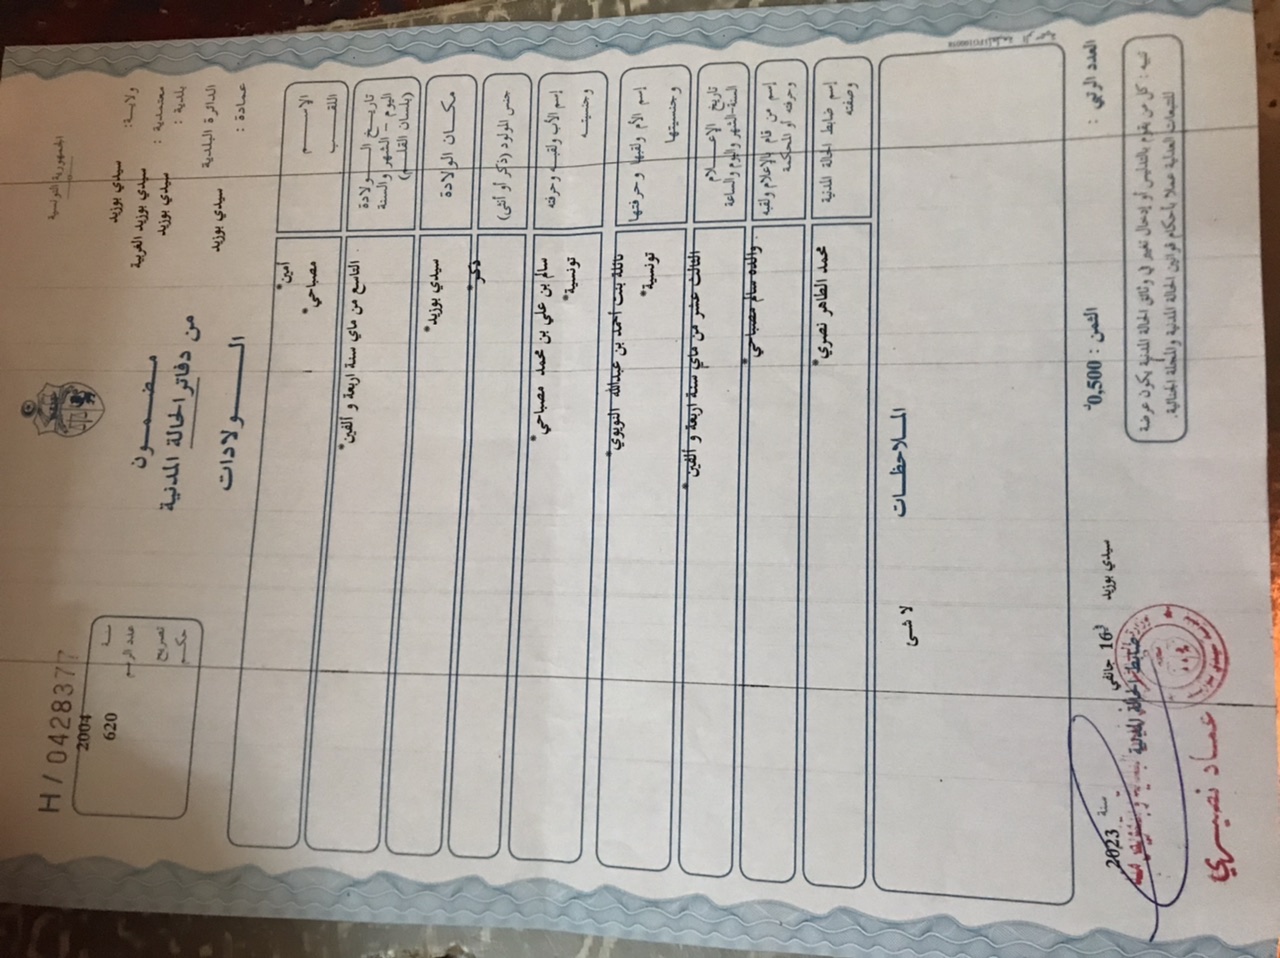 الجمهورية التونسية
ولاية: سيدي بوزيد
معتمدية : سيدي بوزيد الغربية
بلدية : سيدي بوزيد
الدائرة البلدية سيدي بوزيد
عمادة :
H / 042837
سنة 2004
عدد الرسم 620
تصريح
حكم
مضمون
من دفاتر الحالة المدنية
الولادات
الإسم أمين*
اللقب مصباحي*
تاريخ الولادة
اليوم - الشهر والسنة
(بلسان القلم)
التاسع من ماي سنة اربعة و ألفين*
مكان الولادة سيدي بوزيد*
جنس المولود (ذكر أو أنثى) ذكر*
إسم الأب ولقبه وحرفته سالم بن علي بن محمد مصباحي*
وجنسيته تونسية*
إسم الأم ولقبها وحرفتها بنت احمد بن عبدالله النويوي*
وجنسيتها تونسية*
تاريخ الإعلام
السنة-الشهر واليوم والساعة
الثالث عشر من ماي سنة اربعة و ألفين*
إسم من قام بالإعلام ولقبه
وحرفته أو المحكمة
والده سالم مصباحي*
إسم ضابط الحالة المدنية
وصفته
محمد الطاهر نصري*
الملاحظات
لا شئ
العدد الرتبي :
الثمن : 0,500د
سيدي بوزيد في 16 جانفي سنة 2023
ضابط الحالة المدنية
عماد نصيري
تنبيه : كل من يقوم بالتدليس أو إدخال تغيير في وثائق الحالة المدنية يكون عرضة
للتتبعات العدلية عملا بأحكام قوانين الحالة المدنية والمجلة الجنائية.